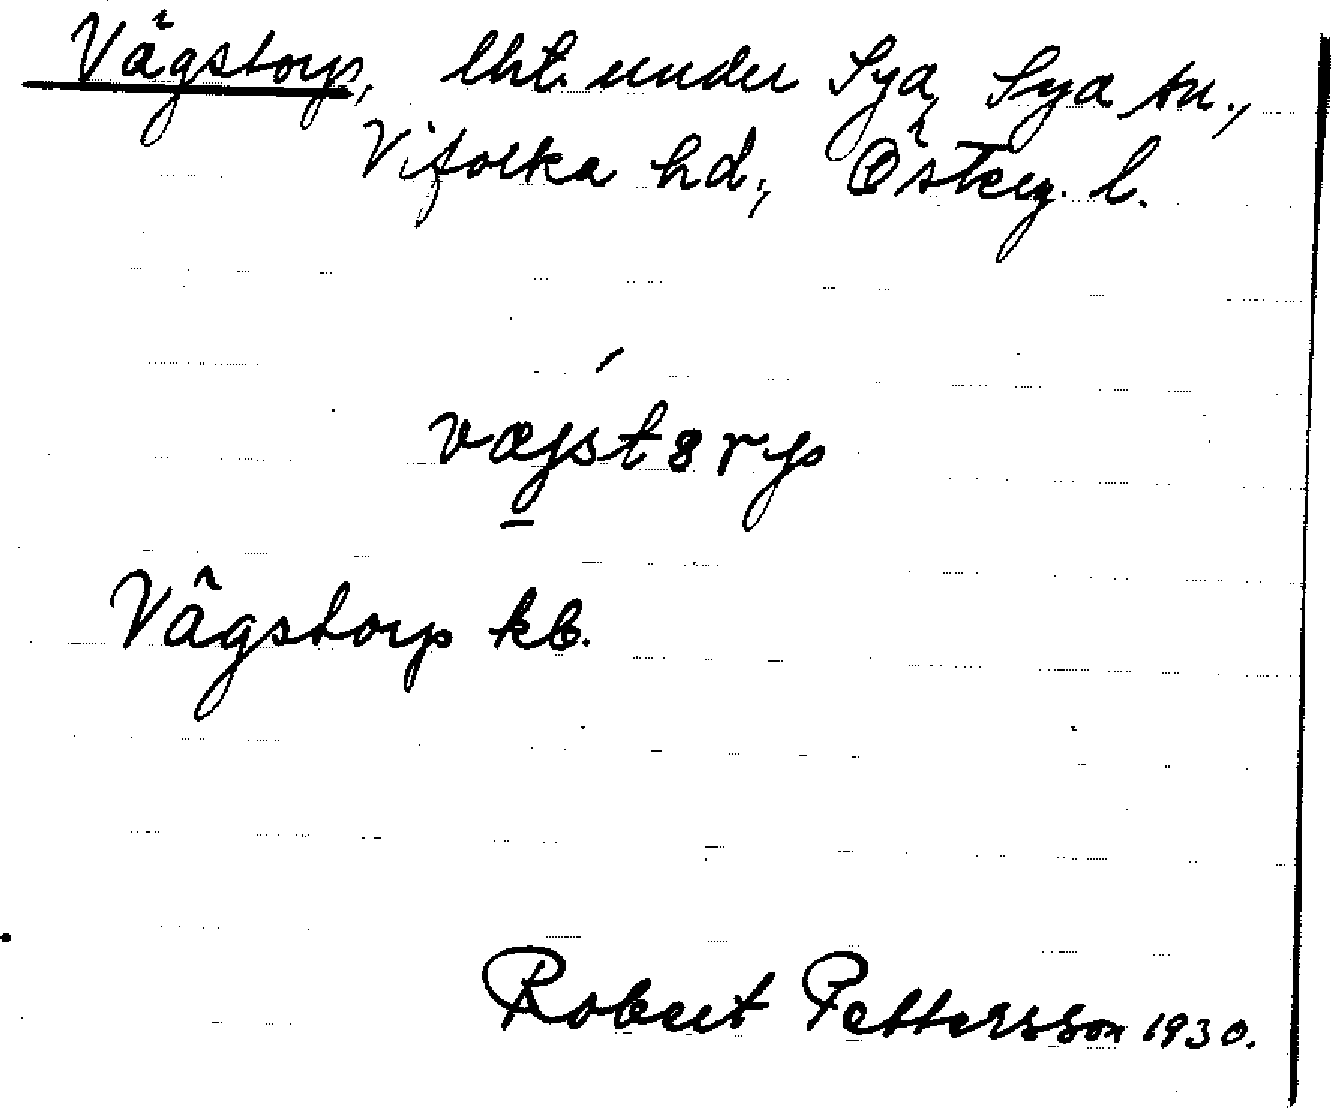 Vägstorp, lht. under Sya, Sya sn.,
Vifolka hd., Österg. l.
væjstȣrp
Vägstorp kb.
Robert Pettersson 1930.